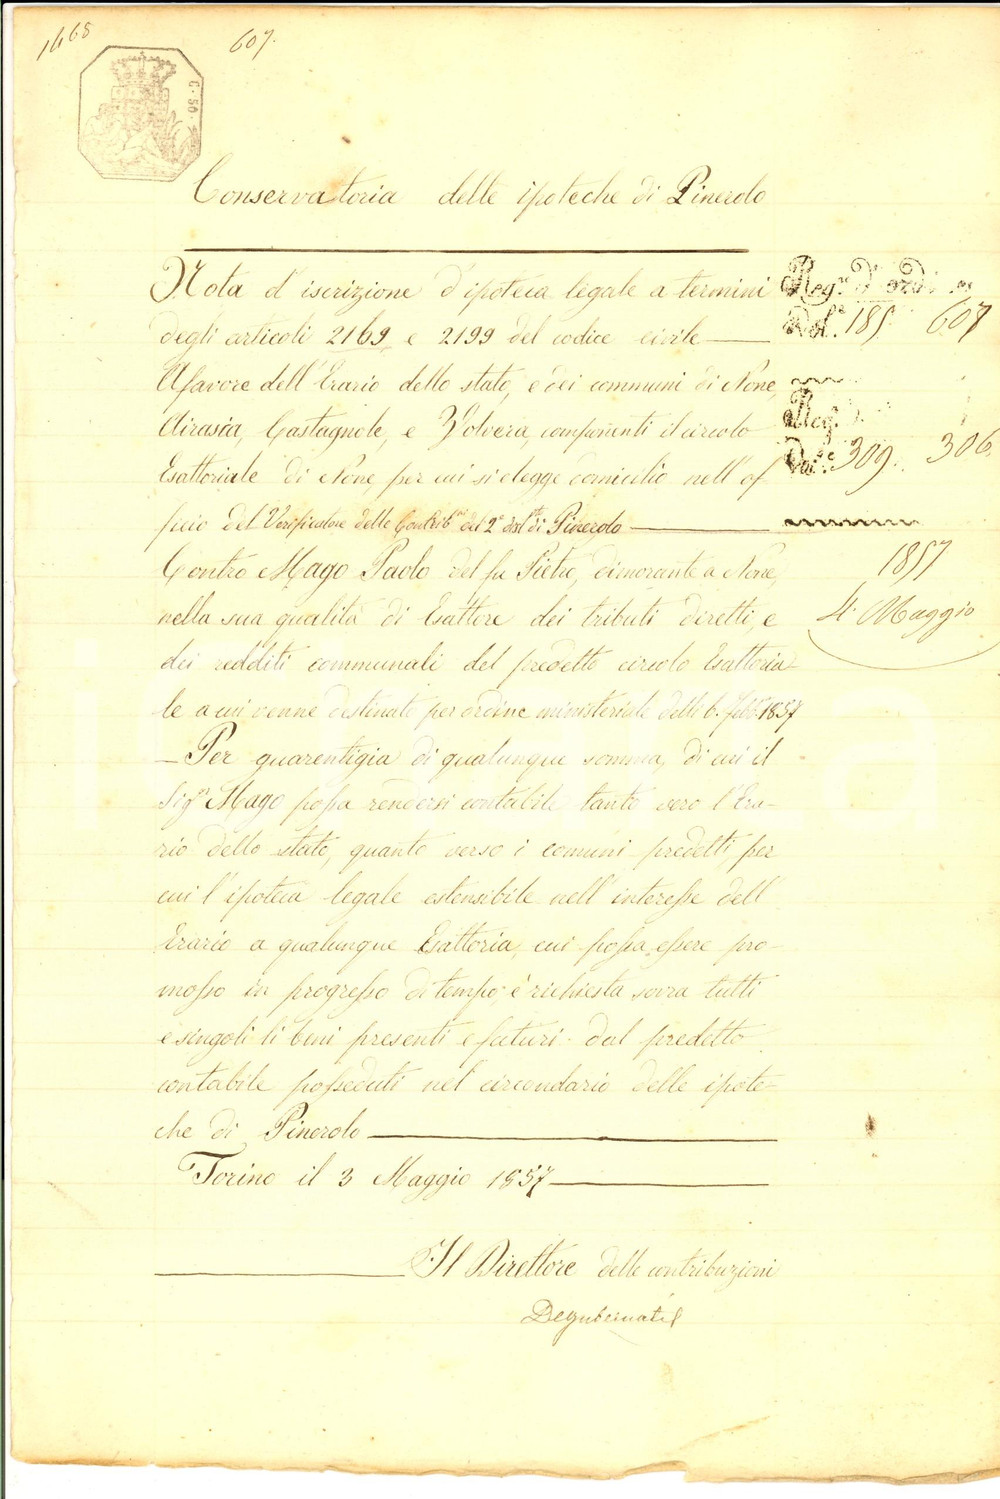 1468
607.
C. 50
Conservatoria delle ipoteche di Pinerolo
Nota d'iscrizione d'ipoteca legale a termini
degli articoli 2169, e 2199 del codice civile
A favore dell'Erario dello stato, e dei communi di None,
Airasca, Castagnole, e Volvera, componenti il circolo
Esattoriale di None, per cui si elegge domicilio nell'of
ficio del Verificatore delle Contrib.ni del 2° dist.to di Pinerolo
Contro Mago Paolo del fu Pietro, dimorante a None,
nella sua qualità di Esattore dei tributi diretti, e
dei redditi communali del predetto circolo Esattoria
le a cui venne destinato per ordine ministeriale delli 6. febb. 1857
Per guarentigia di qualunque somma, di cui il
Sig.r Mago possa rendersi contabile tanto vero l'Era-
rio dello stato, quanto verso i comuni predetti per
cui l'ipoteca legale estensibile nell'interesse dell'
Erario a qualunque Esattoria, cui possa essere pro-
mosso in progresso di tempo, è richiesta sovra tutti
e singoli li beni presenti e futuri dal predetto
contabile posseduti nel circondario delle ipote-
che di Pinerolo
Torino il 3 Maggio 1857
Il Direttore delle contribuzioni
Degubernatis
Reg.o d'ord.
Vol. 185 607
Reg.
309. 306.
1857
4. Maggio